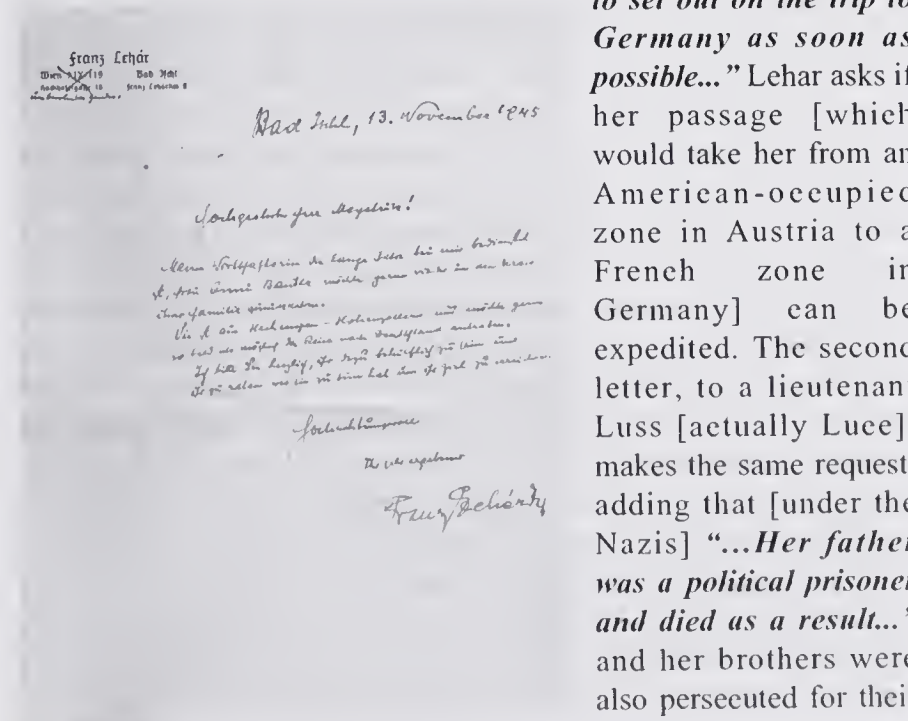 Franz Lehár
Wien XIX/19 Bad Ischl
18 Franz Leharkai 8
Bad Ischl, 13. November 1945
Hochgeehrte Frau Magistrin!
Meine Wirtschafterin die lange Jahre bei mir bedienstet
ist, Frau Bantle möchte gerne nicht in den Kreis
ihrer Familie zurückkehren.
Sie ist aus Hechingen - Hohenzollern und möchte gern
so bald als möglich die Reise nach Deutschland antreten.
Ich bitte Sie herzlich, ihr dazu behilflich zu sein und
ihr zu raten was sie zu tun hat um ihr Ziel zu erreichen.
Hochachtungsvoll
Ihr sehr ergebener
Franz Lehár
to set out on the trip to
Germany as soon as
possible..." Lehar asks if
her passage [which
would take her from an
American-occupied
zone in Austria to a
French zone in
Germany] can be
expedited. The second
letter, to a lieutenant
Luss [actually Luce]
makes the same request
adding that [under the
Nazis] "...Her father
was a political prisoner
and died as a result..."
and her brothers were
also persecuted for thei